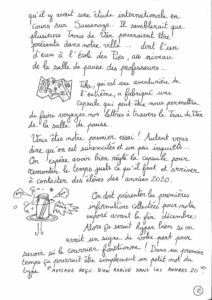 qu'il y avait une étude internationale en
cours sur Sassenage. Il semblerait que
plusieurs Trous de Ver pourraient être
présents dans notre ville ... dont l'un
d'eux à l'école des Pies, au niveau
de la salle de pause des professeurs...
qui est une aventurière de
l'extrême, a fabriqué une
capsule qui peut être nous permettra
de faire voyager nos lettres à travers le Trou de Ver
de la salle de pause.
Vous êtes notre premier essai ! Autant vous
dire qu'on est surexcités et un peu inquiets...
On espère avoir bien réglé la capsule pour
remonter le temps juste ce qu'il faut et arriver
à contacter des élèves des années 2020.
On doit présenter les premières
informations collectées pour notre
exposé avant la fin décembre.
Alors ça serait hyper bien si on
avait un signe de votre part pour
savoir si le courrier fonctionne ! Dans un premier
temps ça pourrait être simplement un petit mot du
type "MESSAGE REÇU BIEN ARRIVÉ DANS LES ANNÉES 20"
2